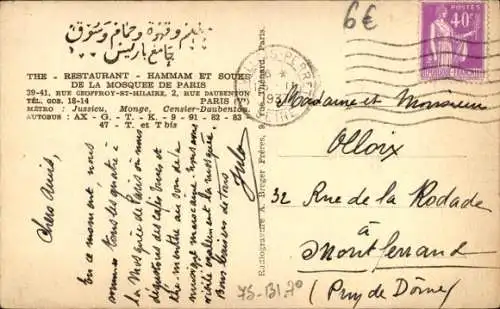 6€
THE - RESTAURANT - HAMMAM ET SOUKS
DE LA MOSQUEE DE PARIS
39-41, RUE GEOFFROY-ST-HILAIRE, 2, RUE DAUBENTON
TÉL. GOB. 18-14 PARIS (Vᵉ)
MÉTRO : Jussieu, Monge, Censier-Daubenton.
AUTOBUS : AX - G. - T. K. - 9 - 91 - 82 - 83
47 - T. et T bis
Chers Amis,
En ce moment nous
sommes tous les quatre à
la Mosquée de Paris où nous
dégustons des cafés turcs et
thé menthe au son de la
musique marocaine nous avons
visité également la mosquée.
Bons baisers de tous
Radiogravure A. Breger Frères, 9, rue Thénard, Paris.
40c
POSTES
Madame et Monsieur
Olloix
32 Rue de la Rodade
à
Montferrand
(Puy de Dôme)
75-BI.70